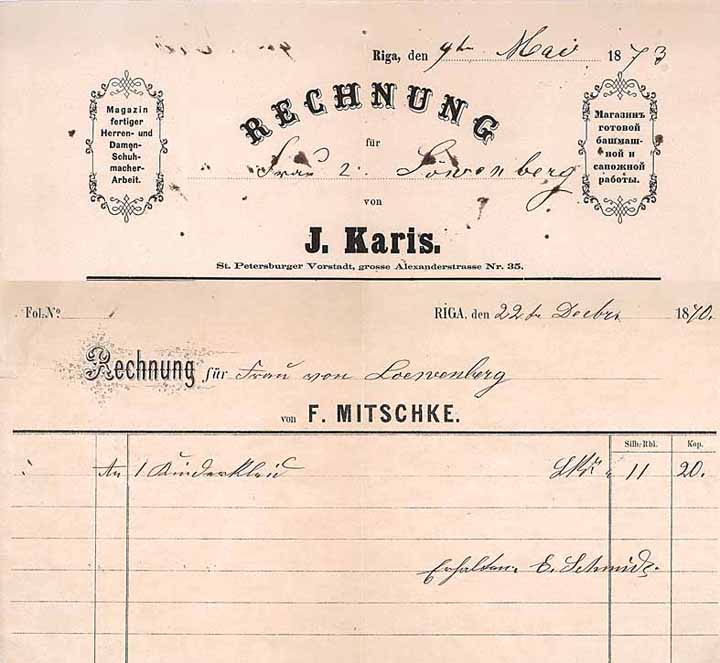 Riga, den 9ten Mai 1873
Magazin
fertiger
Herren- und
Damen-
Schuh-
macher-
Arbeit.
RECHNUNG
Магазинъ
готовой
башмач-
ной и
сапожной
работы.
für
Frau v. Löwenberg
von
J. Karis.
St. Petersburger Vorstadt, grosse Alexanderstrasse Nr. 35.
Fol: No
RIGA, den 22t Decbr. 1870.
Rechnung für Frau von Loewenberg
von F. MITSCHKE.
Silb: Rbl. Kop.
An 1 Kinderkleid 11 20.
Erhalten. E. Schmidt.